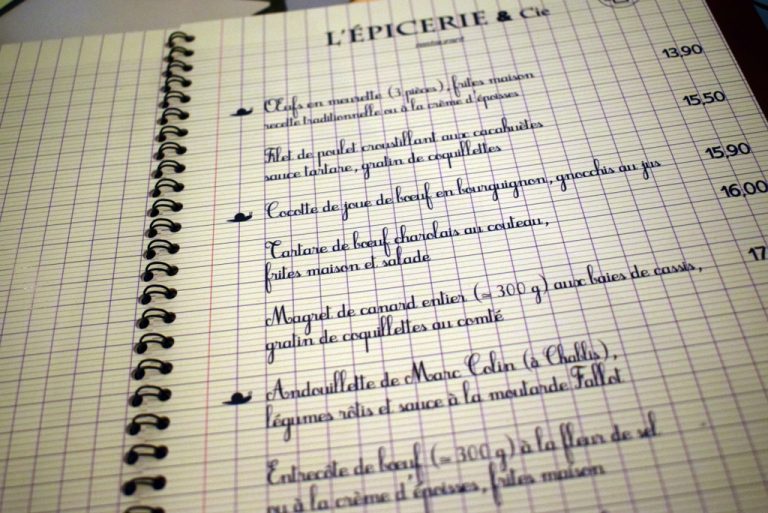 L'ÉPICERIE & Cie
restaurant
13,90
Œufs en meurette (3 pièces), frites maison
recette traditionnelle ou à la crème d'époisses
15,50
Filet de poulet croustillant aux cacahuètes
sauce tartare, gratin de coquillettes
15,90
Cocotte de joue de bœuf en bourguignon, gnocchis au jus
16,00
Tartare de bœuf charolais au couteau,
frites maison et salade
17
Magret de canard entier (≃ 300 g) aux baies de cassis,
gratin de coquillettes au comté
Andouillette de Marc Colin (à Chablis),
légumes rôtis et sauce à la moutarde Fallot
Entrecôte de bœuf (≃ 300 g) à la fleur de sel
ou à la crème d'époisses, frites maison